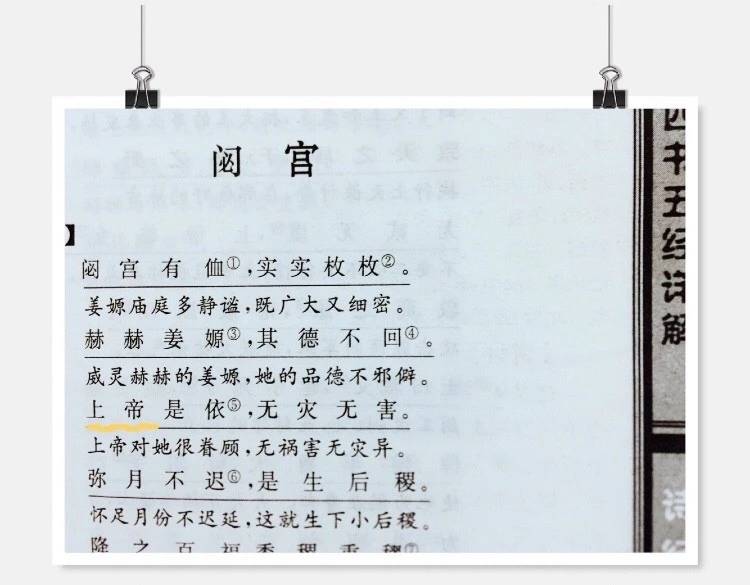 闷宫
】
闷宫有侐①,实实枚枚②。
姜嫄庙庭多静谧,既广大又细密。
赫赫姜嫄③,其德不回④。
威灵赫赫的姜嫄,她的品德不邪僻。
上帝是依⑤,无灾无害。
上帝对她很眷顾,无祸害无灾异。
弥月不迟⑥,是生后稷。
怀足月份不迟延,这就生下小后稷。
降之百福 黍稷重穋⑦
四书五经详解
诗经